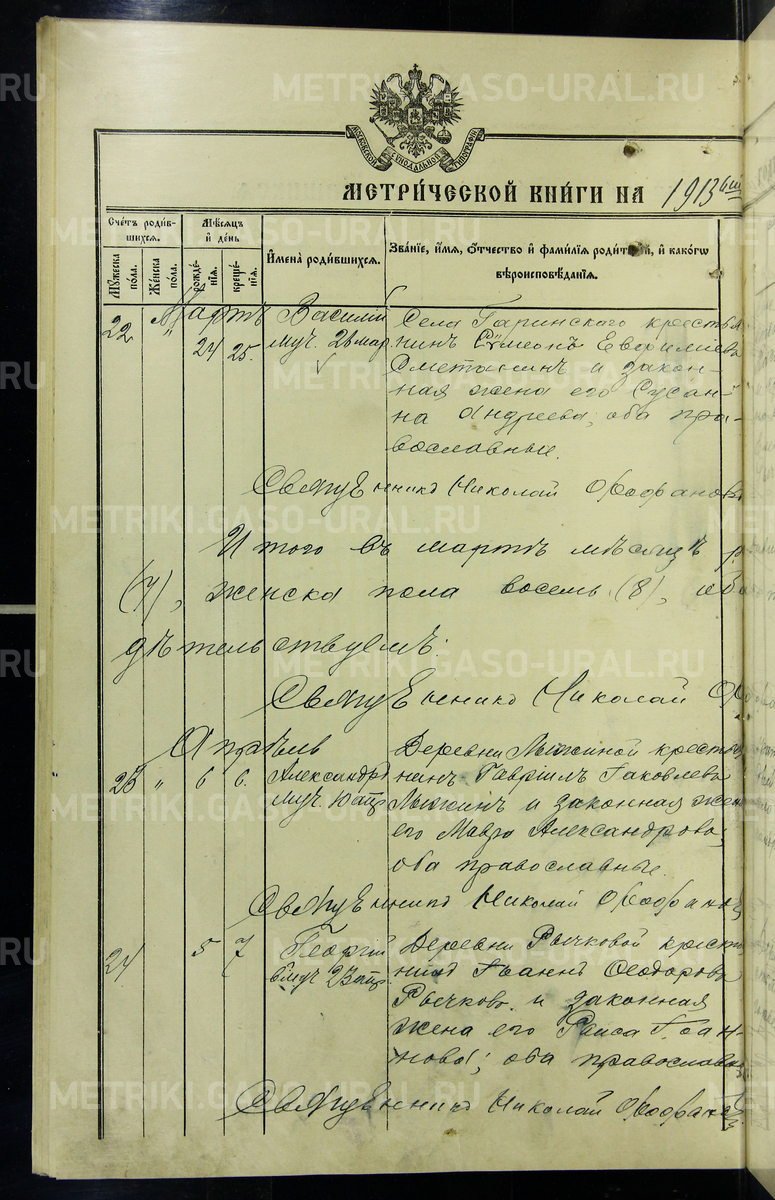 МОСКОВСКОЙ СѴНОДАЛЬНОЙ ТИПОГРАФІИ
МЕТРИ́ЧЕСКОЙ КНИ́ГИ НА 1913
Сче́тъ роди́в-
шихся.
Мѣ́сяцъ
и́ де́нь
Мꙋ́жеска по́ла.
Же́нска по́ла.
рожде́-
нія.
креще́-
нія.
И҆мена̀ роди́вшихся.
Зва́ніе, и҆́мя, ѻ҆́тчество и҆ фами́лія роди́телей, и҆ како́гѡ
вѣроисповѣ́данія.
Мартъ
22 " 24 25.
Василій
муч. 22 мар
Села Гаринскаго крестья
нинъ Сѵмеонъ
Сметанинъ и закон-
ная жена его Сусан-
на Андреева, оба пра-
вославные.
Священникъ Николай Ѳеофановъ
Итого въ мартѣ мѣсяцѣ р
(7), женска пола восемь (8), оба
дѣтельствуемъ:
Священникъ Николай Ѳео
Апрѣль
23 " 6 6.
Александръ
муч. 10 апр
Деревни Лыжиной крестья
нинъ Гавріилъ Іаковлевъ
Лыжинъ и законная жен
его Мавра Александрова,
оба православные.
Священникъ Николай Ѳеофановъ
24 5 7
Георгій
вмуч 23 апр
Деревни Рычковой крестья
нинъ Іоаннъ Ѳеодоровъ
Рычковъ и законная
жена его Раиса Іоан-
нова; оба православн
Священникъ Николай Ѳеофан
METRIKI.GASO-URAL.RU